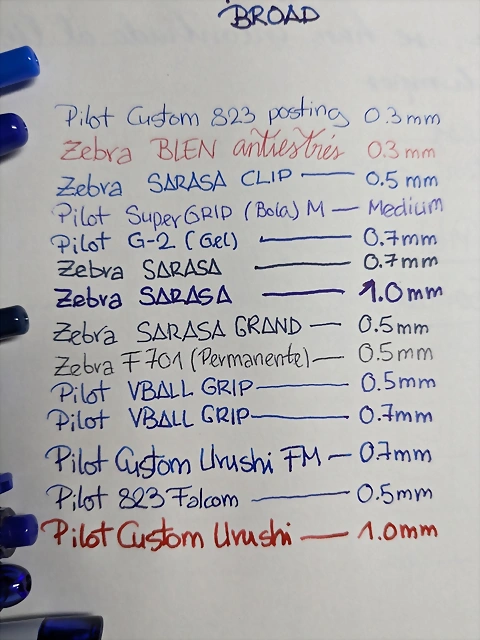 BROAD
Pilot Custom 823 posting 0.3mm
Zebra BLEN antiestrés 0.3mm
Zebra SARASA CLIP — 0.5mm
Pilot SuperGRIP (Bola) M — Medium
Pilot G-2 (Gel) — 0.7mm
Zebra SARASA — 0.7mm
Zebra SARASA — 1.0mm
Zebra SARASA GRAND — 0.5mm
Zebra F701 (Permanente) — 0.5mm
Pilot VBALL GRIP — 0.5mm
Pilot VBALL GRIP — 0.7mm
Pilot Custom Urushi FM — 0.7mm
Pilot 823 Falcom — 0.5mm
Pilot Custom Urushi — 1.0mm